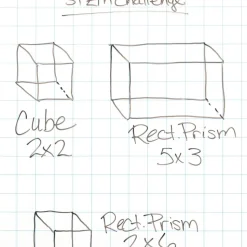 STEM Challenge
Cube
2x2
Rect. Prism
5x3
Rect. Prism